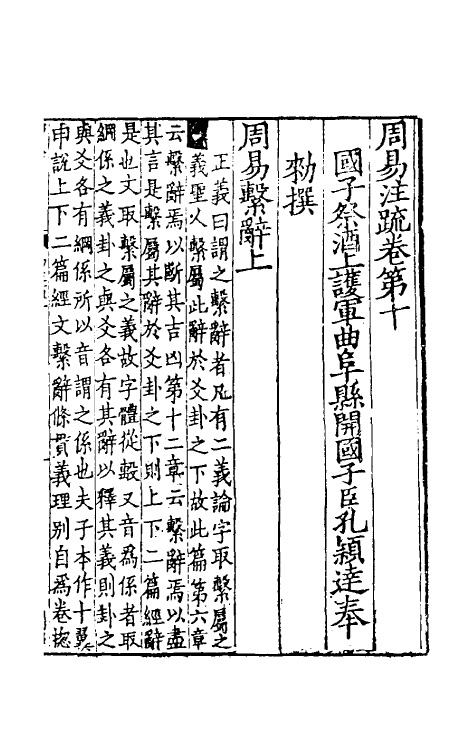 周易注疏卷第十
國子祭酒上護軍曲阜縣開國子臣孔穎達奉
勑撰
周易繫辭上
正義曰謂之繫辭者凡有二義論字取繫屬之
義聖人繫屬此辭於爻卦之下故此篇第六章
云繫辭焉以斷其吉凶第十二章云繫辭焉以盡
其言是繫屬其辭於爻卦之下則上下二篇經辭
是也文取繫屬之義故字體從毄又音爲係者取
綱係之義卦之與爻各有其辭以釋其義則卦之
與爻各有綱係所以音謂之係也夫子本作十翼
申說上下二篇經文繫辭條貫義理別自爲卷揔